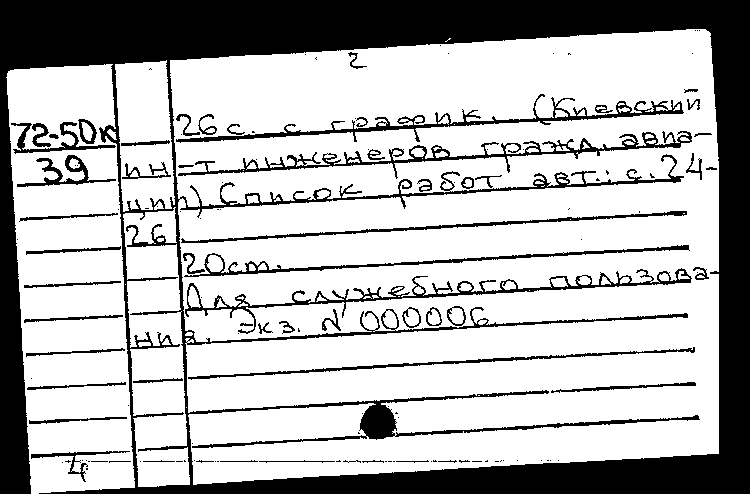 2
72-50к 26с. с график. (Киевский
39 ин-т инженеров гражд. авиа-
ции). Список работ авт.: с. 24-
26
20см.
Для служебного пользова-
ния. Экз. N 000006
4